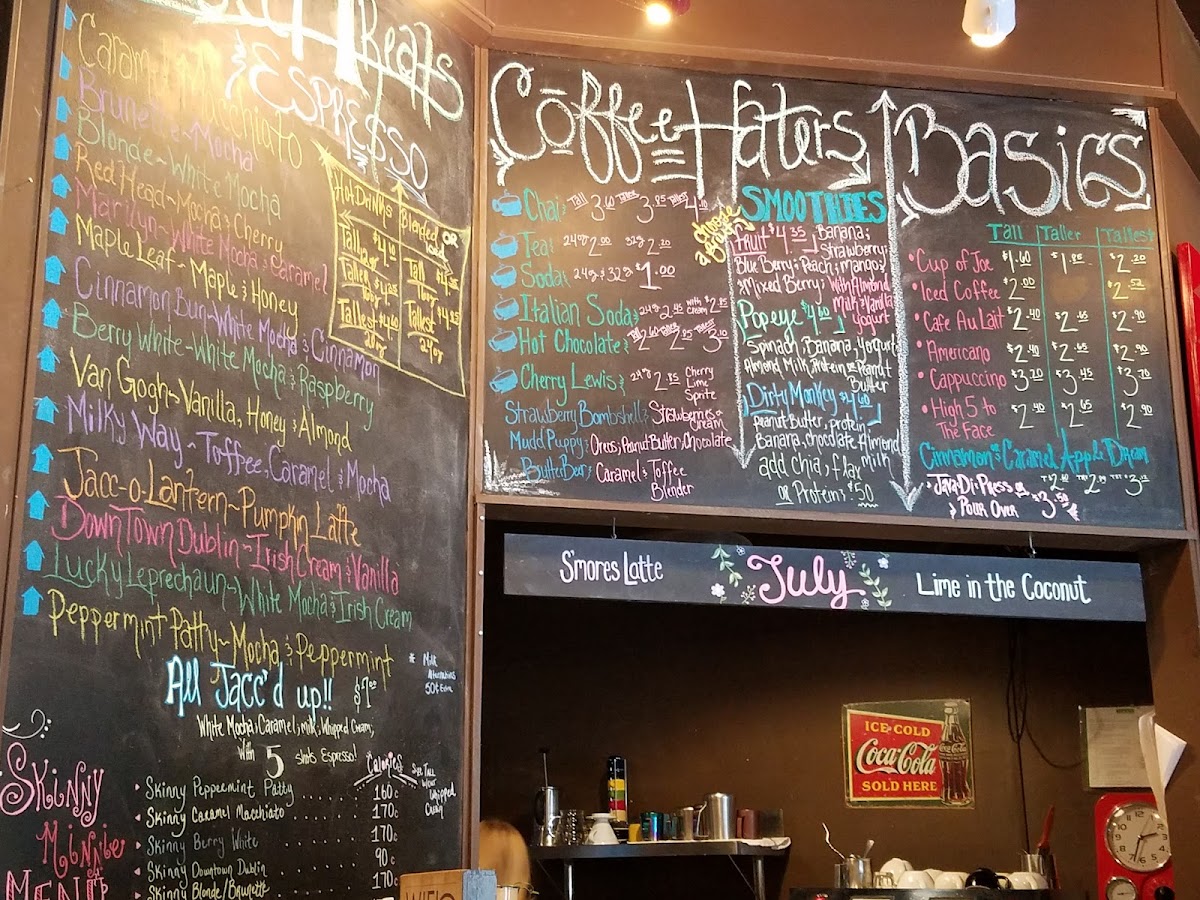 Treats
ESPRESSO
Caramel Macchiato
Brunette~Mocha
Blonde~White Mocha
Red Head~Mocha & Cherry
Marilyn~White Mocha & Caramel
Maple Leaf~Maple & Honey
Cinnamon Bun~White Mocha & Cinnamon
Berry White~White Mocha & Raspberry
Van Gogh~Vanilla, Honey & Almond
Milky Way~Toffee, Caramel & Mocha
Jacc-o-Lantern~Pumpkin Latte
DownTown Dublin~Irish Cream & Vanilla
Lucky Leprechaun~White Mocha & Irish Cream
Peppermint Patty~Mocha & Peppermint
Hot Drinks
Tall
Taller
Tallest $4.60
20oz
Blended OR
Tall
16oz
Tallest
24oz
* Milk
Alternatives
50¢ Extra
All Jacc'd up!! $7.00
White Mocha, Caramel, milk, Whipped Cream,
With 5 shots Espresso!
Skinny
Minnie
MENU
Calories
Whipped
Cream
Skinny Peppermint Patty ........ 160c
Skinny Caramel Macchiato ........ 170c
Skinny Berry White ........ 170c
Skinny Downtown Dublin ........ 90c
Skinny Blonde/Brunette ........ 170c
Coffee Haters
Chai Tall 3.60 Taller 3.85 Tallest 4.10
Tea 24oz 2.00 32oz 2.20
Soda 24oz & 32oz $1.00
Italian Soda 24oz 2.45 with cream $2.85
Hot Chocolate Tall 2.60 Taller 2.85 Tallest 3.10
Cherry Lewis 24oz 2.85 Cherry
Lime
Sprite
Strawberry Bombshell: Strawberries &
Cream
Mudd Puppy: Oreos, Peanut Butter, Chocolate
ButterBeer: Caramel & Toffee
Blender
SMOOTHIES
Fruit $4.35 Banana,
Strawberry,
BlueBerry, Peach, Mango,
& Mixed Berry, with Almond
Milk & Vanilla
yogurt
Popeye $4.60
Spinach, Banana, Yogurt,
Almond Milk, Protein or Peanut
Butter
Dirty Monkey $4.60
Peanut Butter, protein
Banana, chocolate, Almond
milk
add chia, flax
or Protein $.50
Basics
Tall Taller Tallest
• Cup of Joe $1.60 $2.20
• Iced Coffee $2.00 $2.52
• Cafe Au Lait $2.40 $2.65 $2.90
• Americano $2.40 $2.65 $2.90
• Cappuccino $3.20 $3.45 $3.70
• High 5 to
The Face $2.40 $2.65 $2.90
Cinnamon or Caramel Apple Dream
Java Di Press or
Pour Over $3.50
S'mores Latte July Lime in the Coconut
ICE-COLD
Coca-Cola
SOLD HERE